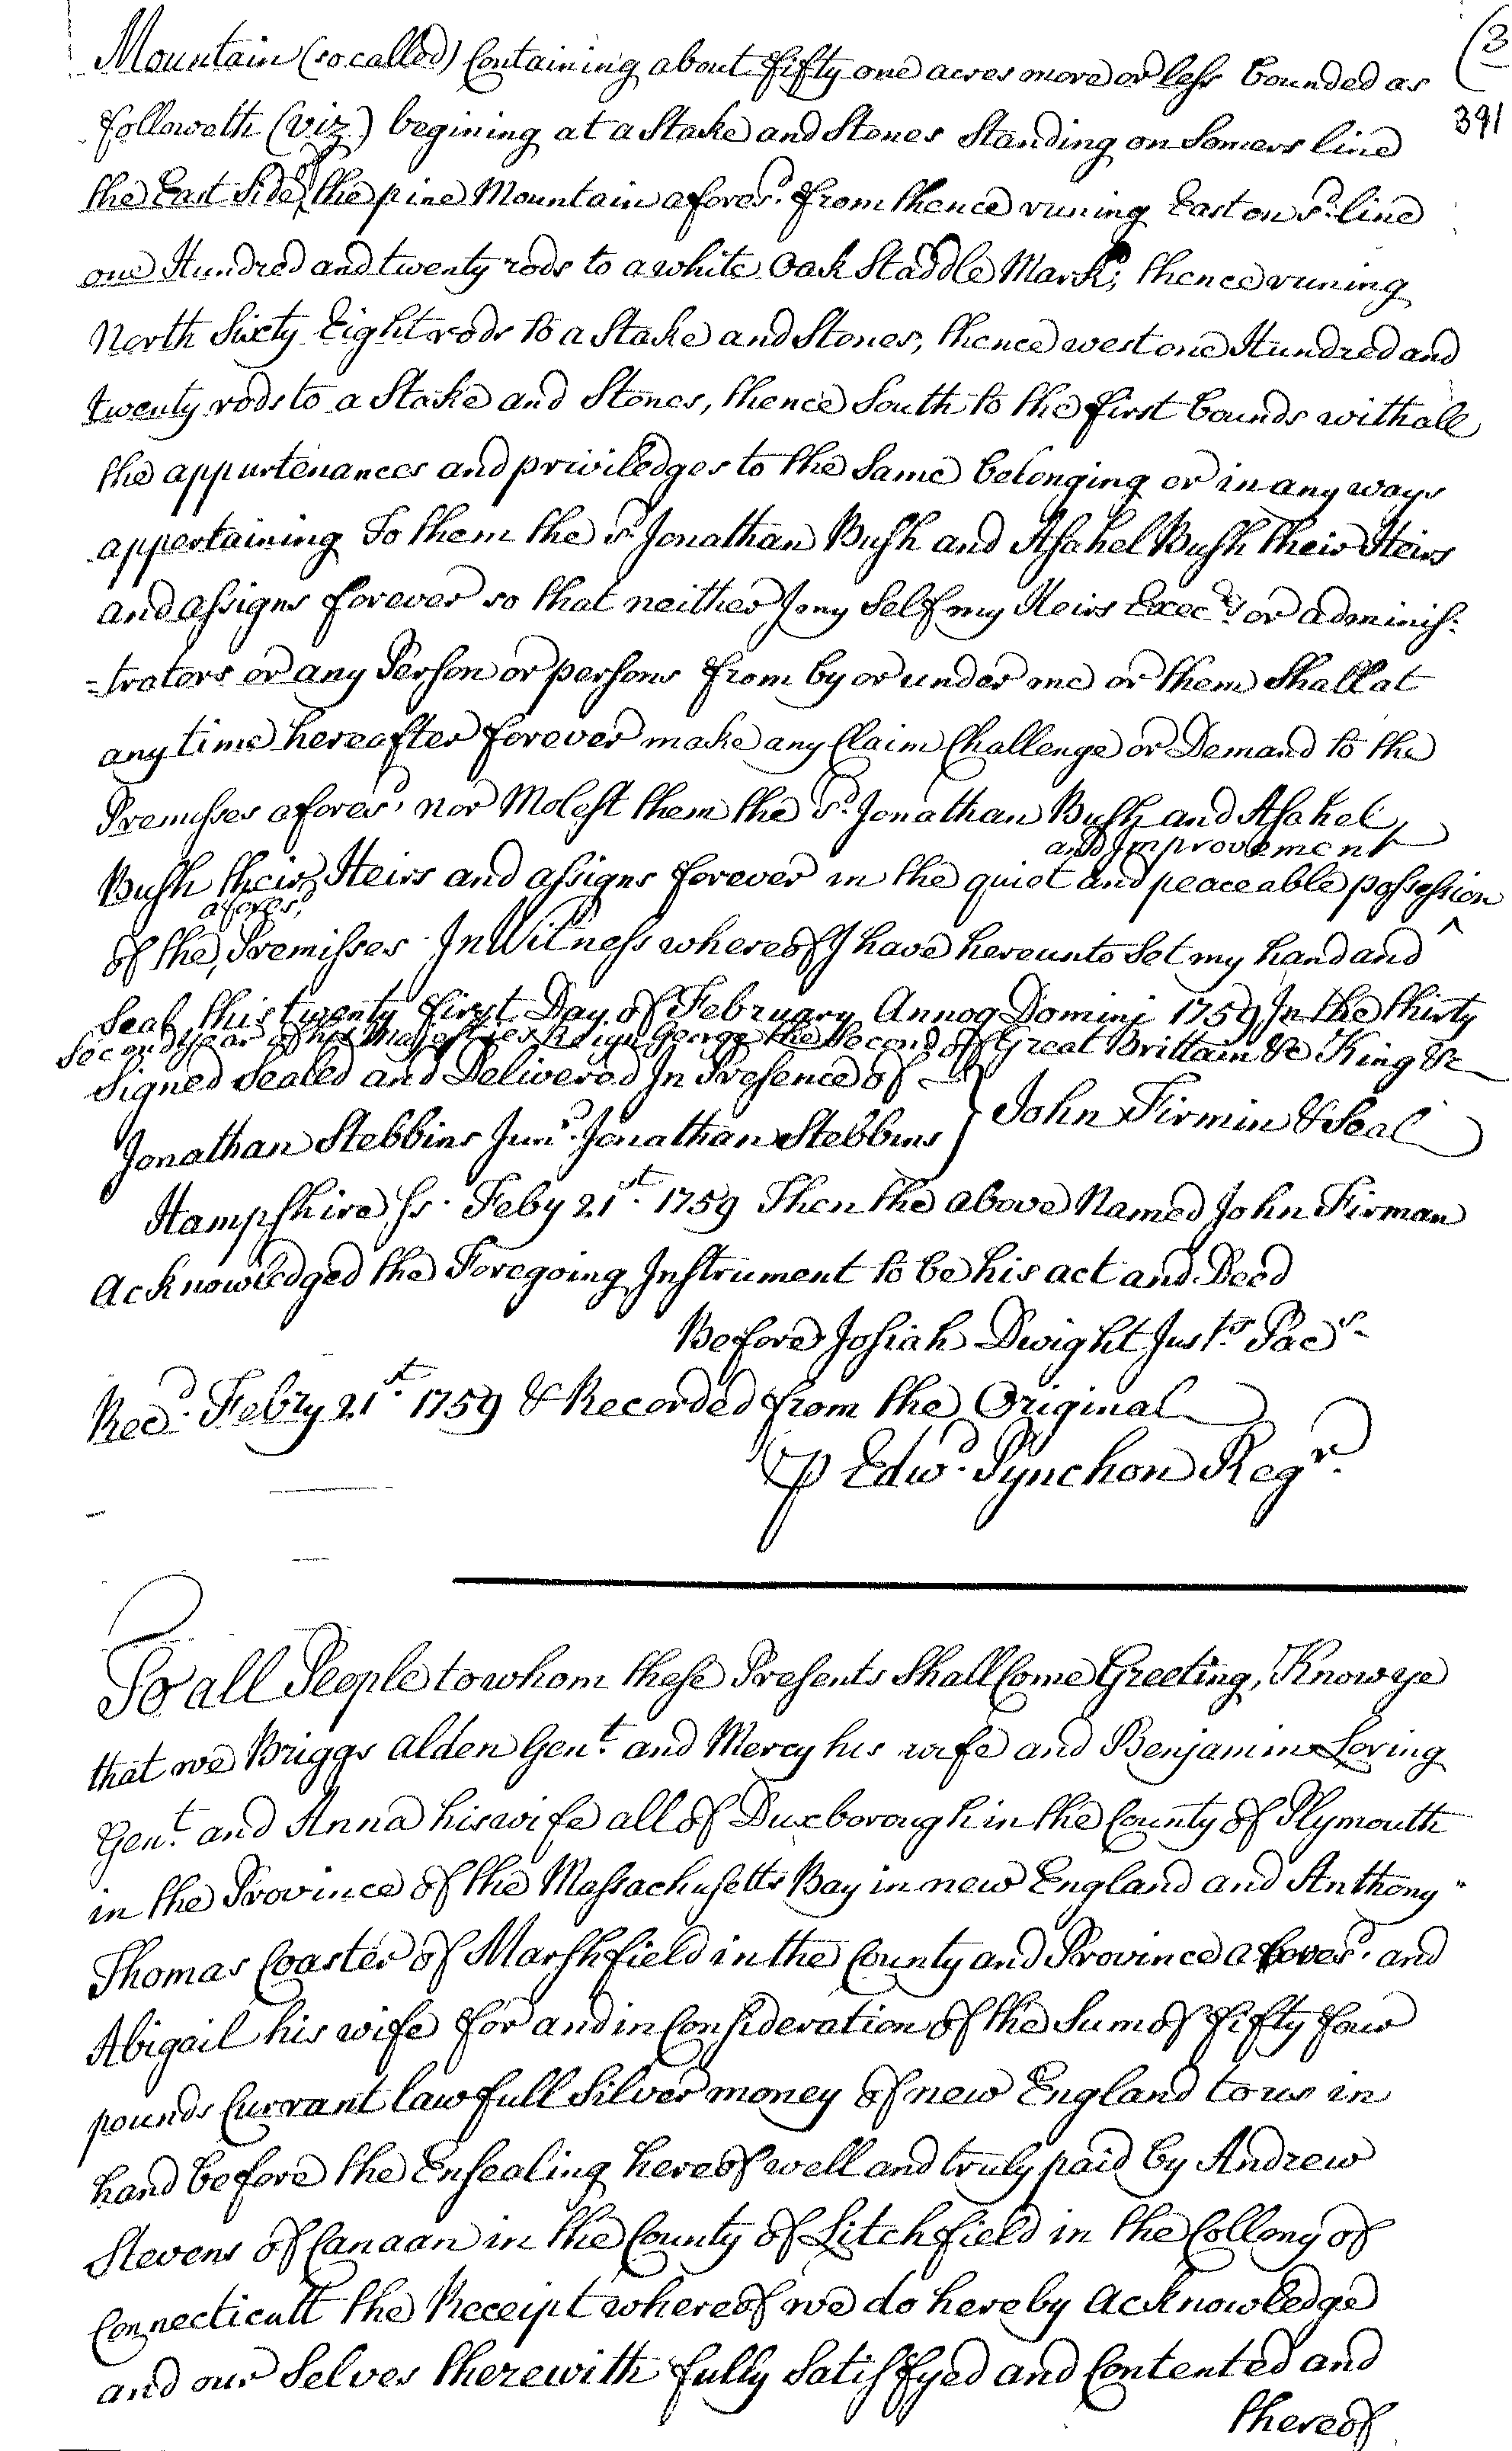 (3
391
Mountain (so called) Containing about fifty one acres more or less bounded as
followeth (viz.) begining at a Stake and Stones Standing on Somers line
the East Side of the pine Mountain afores.d from thence runing East on s.d line
one Hundred and twenty rods to a white Oak Staddle Mark.d, thence runing
North Sixty Eight rods to a Stake and Stones, thence west one Hundred and
twenty rods to a Stake and Stones, thence South to the first bounds with all
the appurtenances and priviledges to the Same belonging or in any ways
appertaining To them the s.d Jonathan Bush and Asahel Bush their Heirs
and assigns forever so that neither I my Self my Heirs Exec.rs or adminis:
-trators or any Person or persons from by or under me or them Shall at
any time hereafter forever make any Claim Challenge or Demand to the
Premisses afores.d nor Molest them the s.d Jonathan Bush and Asahel
and Improvement
Bush their Heirs and assigns forever in the quiet and peaceable possession
afores.d
of the Premisses In Witness whereof I have hereunto Set my hand and
Seal this twenty first Day of February Annoq Domini 1759 In the thirty
Second year of his Majesties Reign George the Second of Great Brittain &c King &c
Signed Sealed and Delivered In Presence of
Jonathan Stebbins Jun.r Jonathan Stebbins } John Firmin & Seal
Hampshire ss. Feby 21.st 1759 Then the above Named John Firman
Acknowledged the Foregoing Instrument to be his act and Deed
Before Josiah Dwight Just.s Pac.s
Rec.d Febry 21.st 1759 & Recorded from the Original
p Edw.d Pynchon Reg.r
To all People to whom these Presents Shall Come Greeting, Know ye
that we Briggs Alden Gen.t and Mercy his wife and Benjamin Loring
Gen.t and Anna his wife all of Duxborough in the County of Plymouth
in the Province of the Massachusetts Bay in new England and Anthony
Thomas Coaster of Marshfield in the County and Province afores.d and
Abigail his wife for and in Consideration of the Sum of fifty four
pounds Currant lawfull Silver money of new England to us in
hand before the Ensealing hereof well and truly paid by Andrew
Stevens of Canaan in the County of Litchfield in the Collony of
Connecticutt the Receipt whereof we do hereby Acknowledge
and our Selves therewith fully Satisfyed and Contented and
thereof